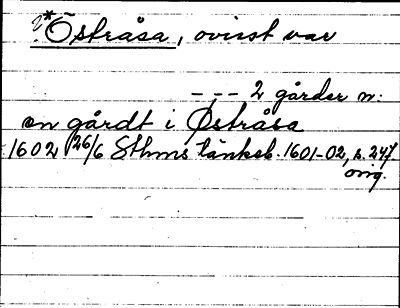 ?*Östråsa, ovisst var
–„– 2 gårder n:
en gårdt i Østråsa
1602 26/6 Sthms tänkeb. 1601–02, s. 247.
orig.